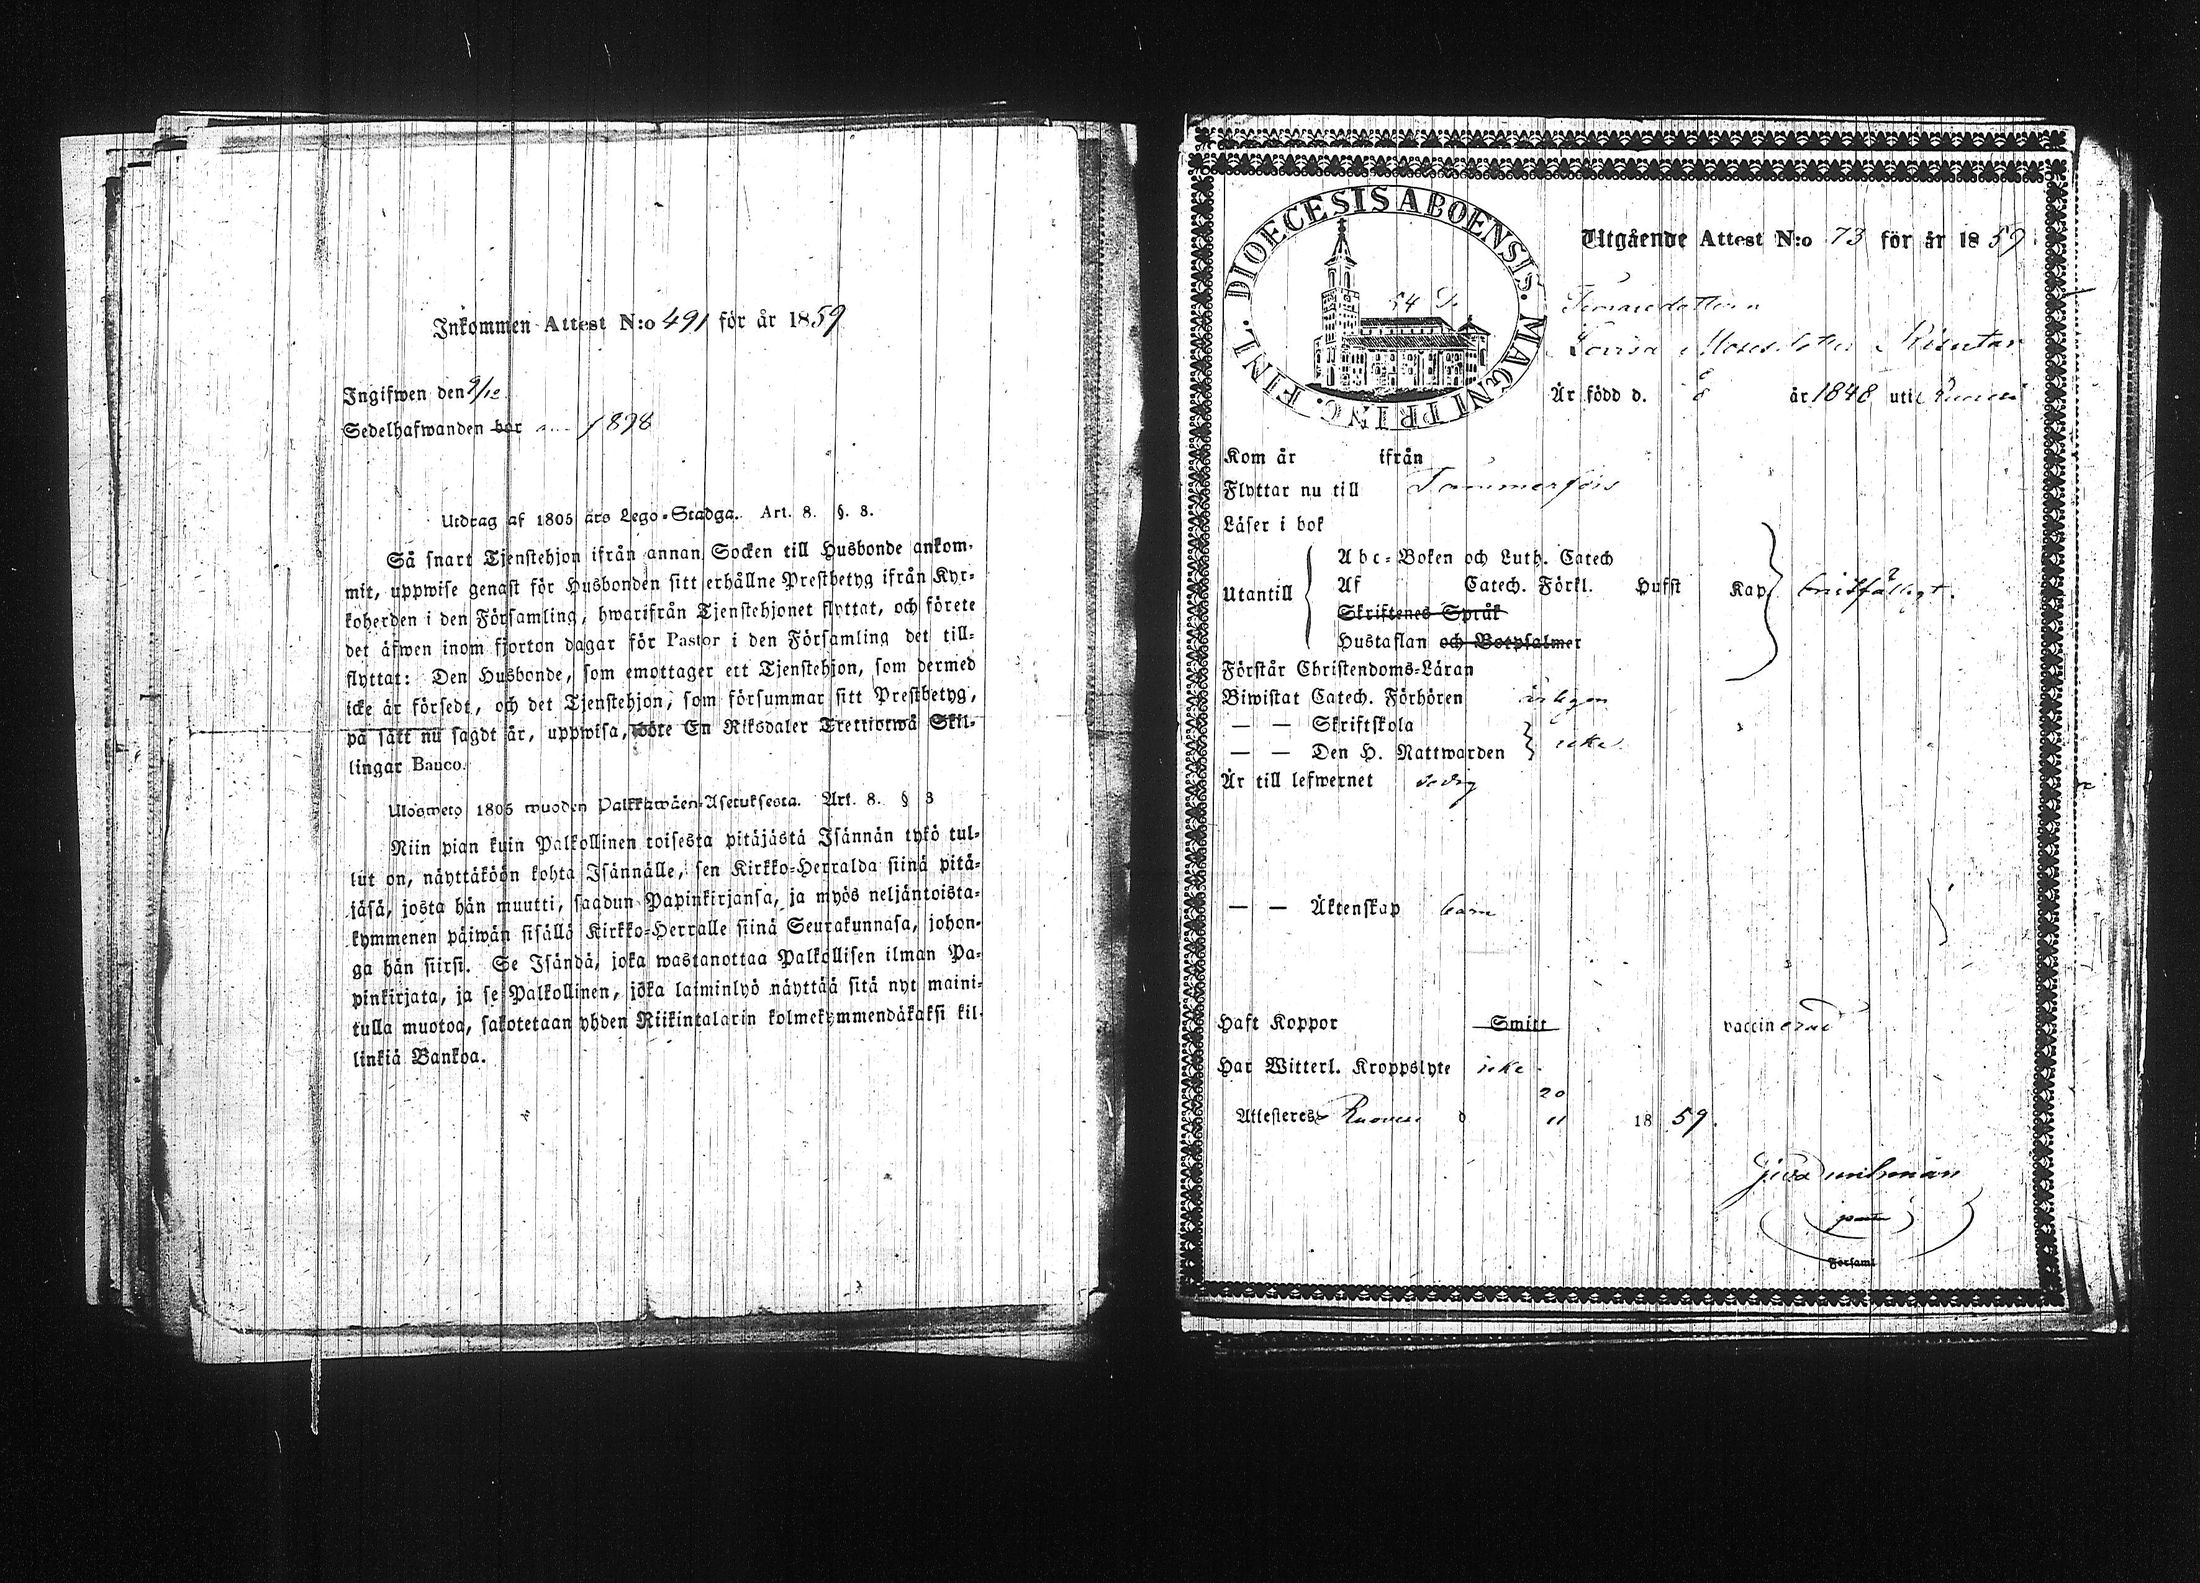 Inkommen Attest N:o 491 för år 1859
Ingifwen den 9/12
Sedelhafwanden bör 1898
Utdrag af 1805 års Lego-Stadga. Art. 8. §. 8.
Så snart Tjenstehjon ifrån annan Socken till Husbonde ankom-
mit, uppwise genast för Husbonden sitt erhållne Prestbetyg ifrån Kyr-
koherden i den Församling, hwarifrån Tjenstehjonet flyttat, och förete
det äfwen inom fjorton dagar för Pastor i den Församling det till-
flyttat: Den Husbonde, som emottager ett Tjenstehjon, som dermed
icke är försedt, och det Tjenstehjon, som försummar sitt Prestbetyg,
på sätt nu sagdt är, uppwisa, böte En Riksdaler Trettiotwå Skil-
lingar Banco.
Ulosweto 1805 wuoden Palkkawäen-Asetuksesta. Art. 8. § 8
Niin pian kuin Palkollinen toisesta pitäjästä Isännän tykö tul-
lut on, näyttäköön kohta Isännälle, sen Kirkko-Herralda siinä pitä-
jäsä, josta hän muutti, saadun Papinkirjansa, ja myös neljäntoista-
kymmenen päiwän sisällä Kirkko-Herralle siinä Seurakunnasa, johon-
ga hän siirsi. Se Isändä, joka wastanottaa Palkollisen ilman Pa-
pinkirjata, ja se Palkollinen, joka laiminlyö näyttää sitä nyt maini-
tulla muotoa, sakotetaan yhden Riikintalarin kolmekymmendäkaksi kil-
linkiä Bankoa.
DIOECESIS ABOENSIS. MAGNI PRINC. FINL.
54
Utgående Attest N:o 73 för år 1859
Lovisa Mosesdotter
Är född d. 8/6 år 1848 uti Ruovesi
Kom år ifrån
Flyttar nu till Tammerfors
Läser i bok
Utantill
Abc-Boken och Luth. Catech
Af Catech. Förkl. Hufst Kap.
Skriftenes Språk
Hustaflan och Botpsalmer
Förstår Christendoms-Läran
Biwistat Catech. Förhören årligen
— — Skriftskola
— — Den H. Nattwarden icke
Är till lefwernet sedig
— — Äktenskap barn
Haft Koppor Smitt vaccinerad
Har Witterl. Kroppslyte icke
Attesteres Ruovesi d 20/11 1859.
Församl